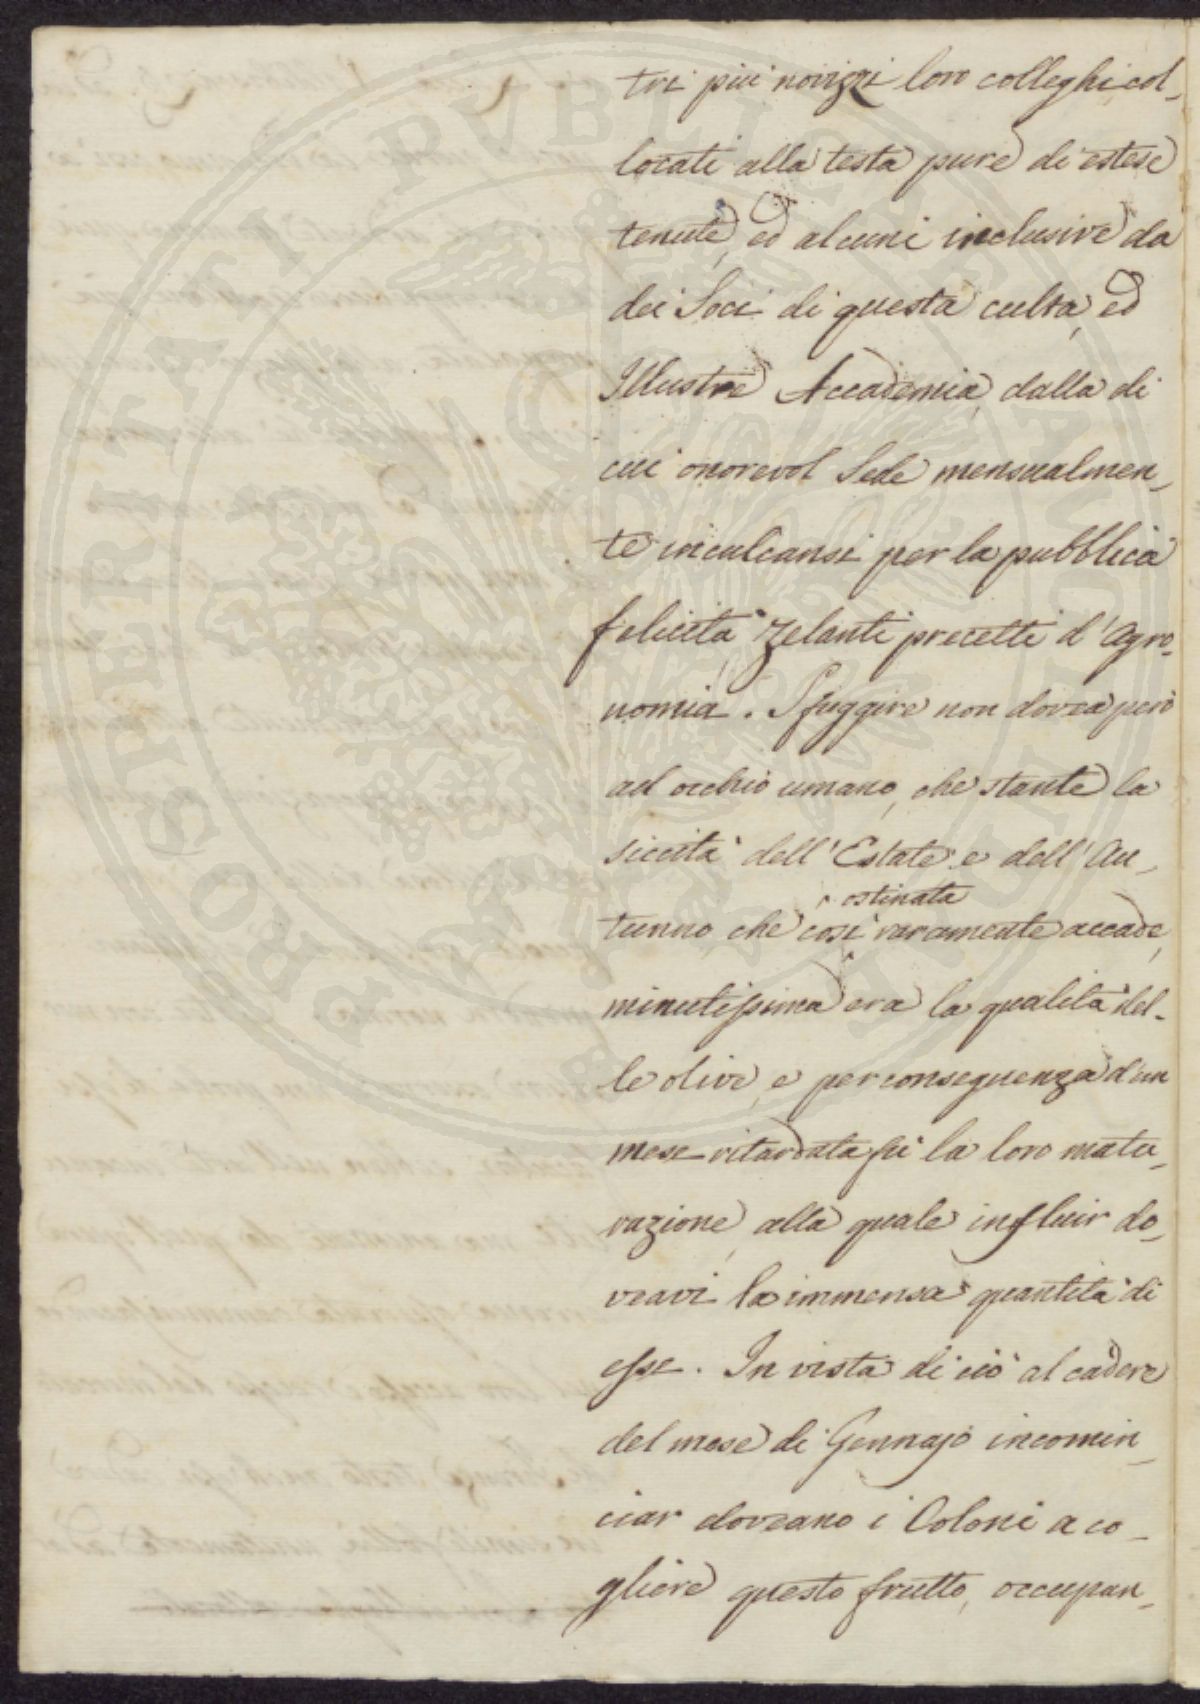 tri più novizzi loro colleghi col-
locati alla testa pure di estese
tenute, ed alcuni inclusive da
dei Soci di questa culta, ed
Illustre Accademia, dalla di
cui onorevol Sede mensualmen-
te inculcansi per la pubblica
felicità zelanti precetti d'Agro-
nomia. Sfuggire non dovea però
ad occhio umano, che stante la
siccità dell'Estate e dell'Au-
ostinata
tunno, che così raramente accade,
minutissima era la qualità del-
le olive, e per conseguenza d'un
mese ritardata fù la loro matu-
razione, alla quale influir do-
veavi la immensa quantità di
esse. In vista di ciò al cadere
del mese di Gennajo incomin-
ciar doveano i Coloni a co-
gliere questo frutto, occupan-
PROSPERITATI PVBLICAE AVGENDAE